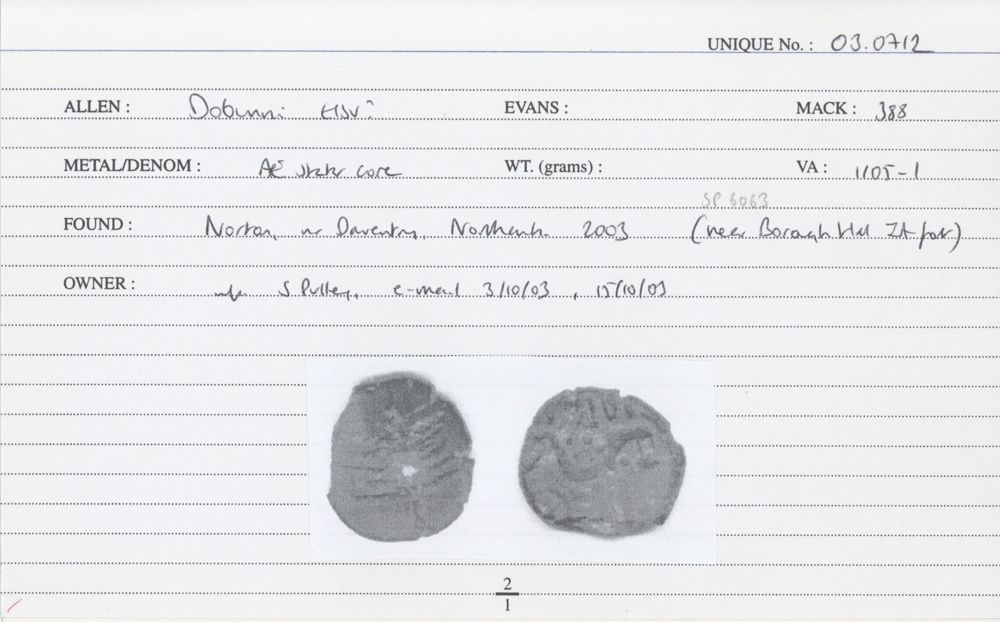 UNIQUE No. : 03.0712
ALLEN : Dobunni EISV? EVANS : MACK : 388
METAL/DENOM : AE stater core WT. (grams) : VA : 1105-1
SP 6063
FOUND : Norton, nr Daventry, Northants. 2003 (near Borough Hill IA fort)
OWNER : S Pulley, e-mail 3/10/03, 15/10/03
2
1